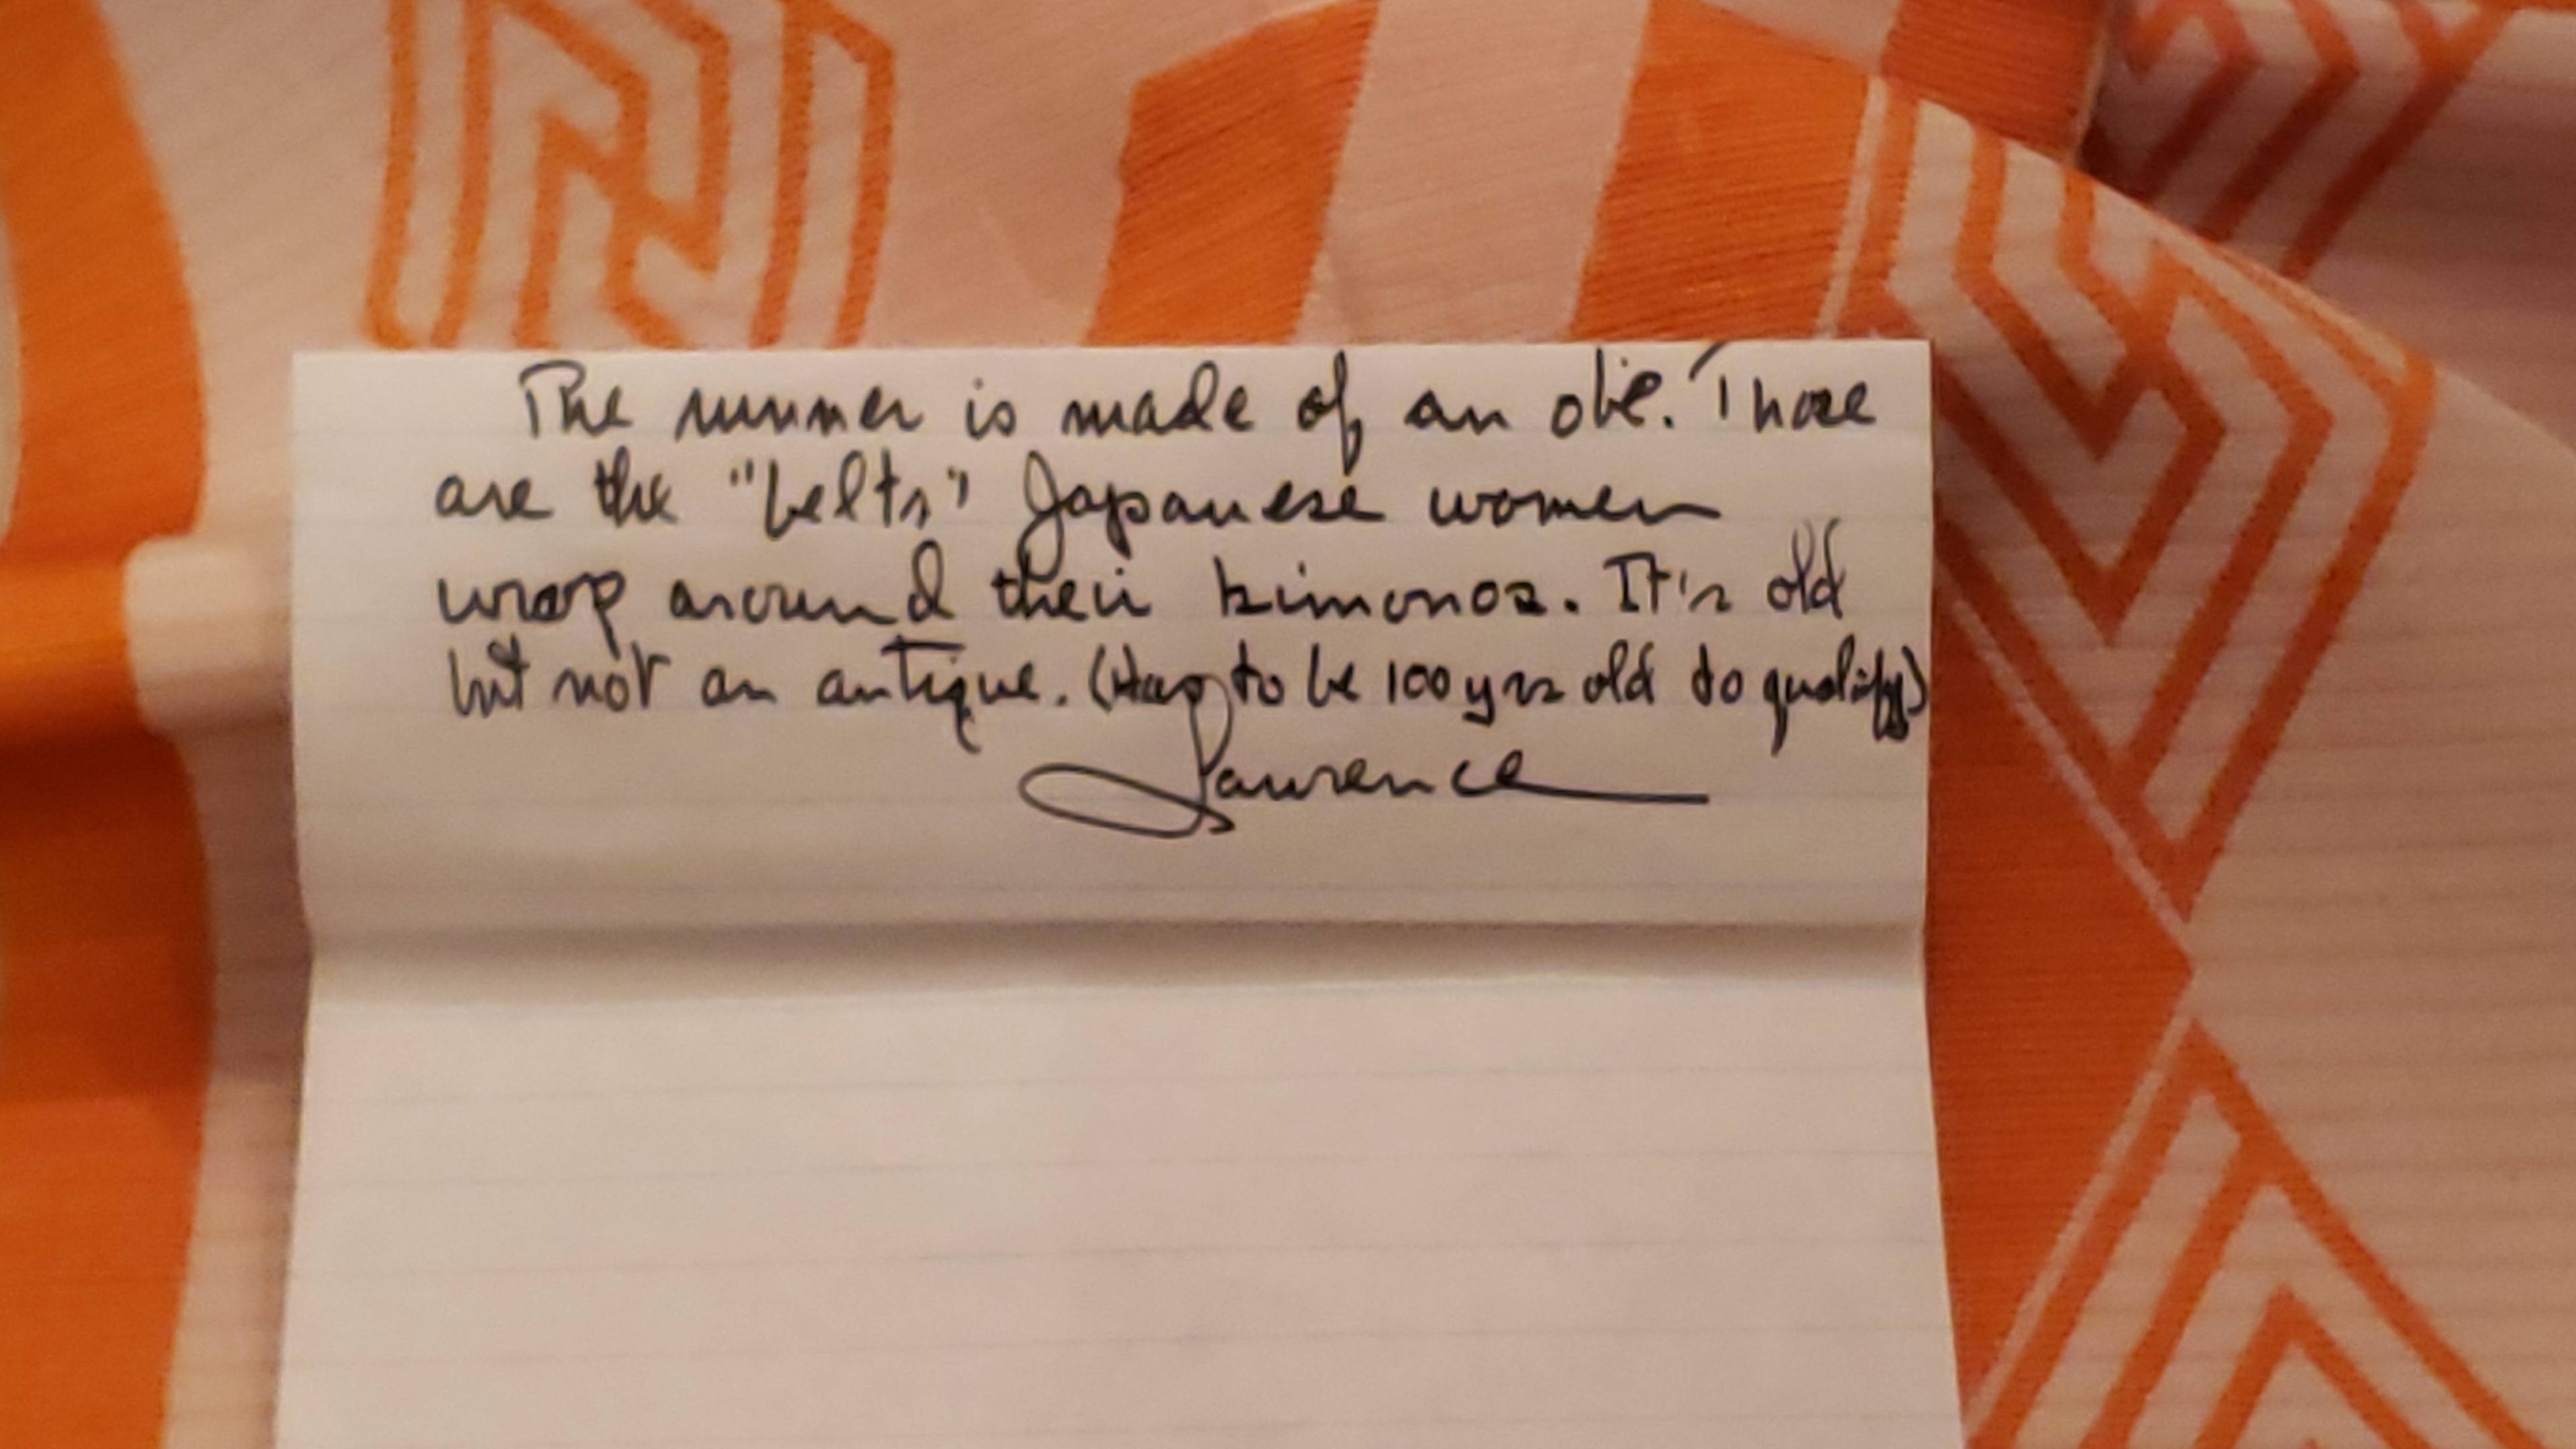 The runner is made of an obe. Those
are the "belts" Japanese women
wrap around their kimonos. It's old
but not an antique. (Has to be 100 yrs old to qualify)
Lawrence